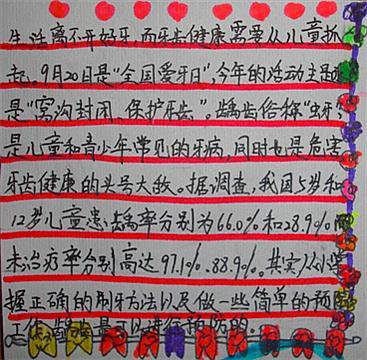 生活离不开好牙,而牙齿健康需要从儿童抓
起。9月20日是"全国爱牙日",今年的活动主题
是"窝沟封闭、保护牙齿"。龋齿俗称"虫牙",
是儿童和青少年常见的牙病,同时也是危害
牙齿健康的头号大敌。据调查,我国5岁和
12岁儿童患龋率分别为66.0%和28.9%,
未治疗率分别高达97.1%、88.9%。其实,从小掌
握正确的刷牙方法以及做一些简单的预防
工作,龋齿是可以进行预防的。